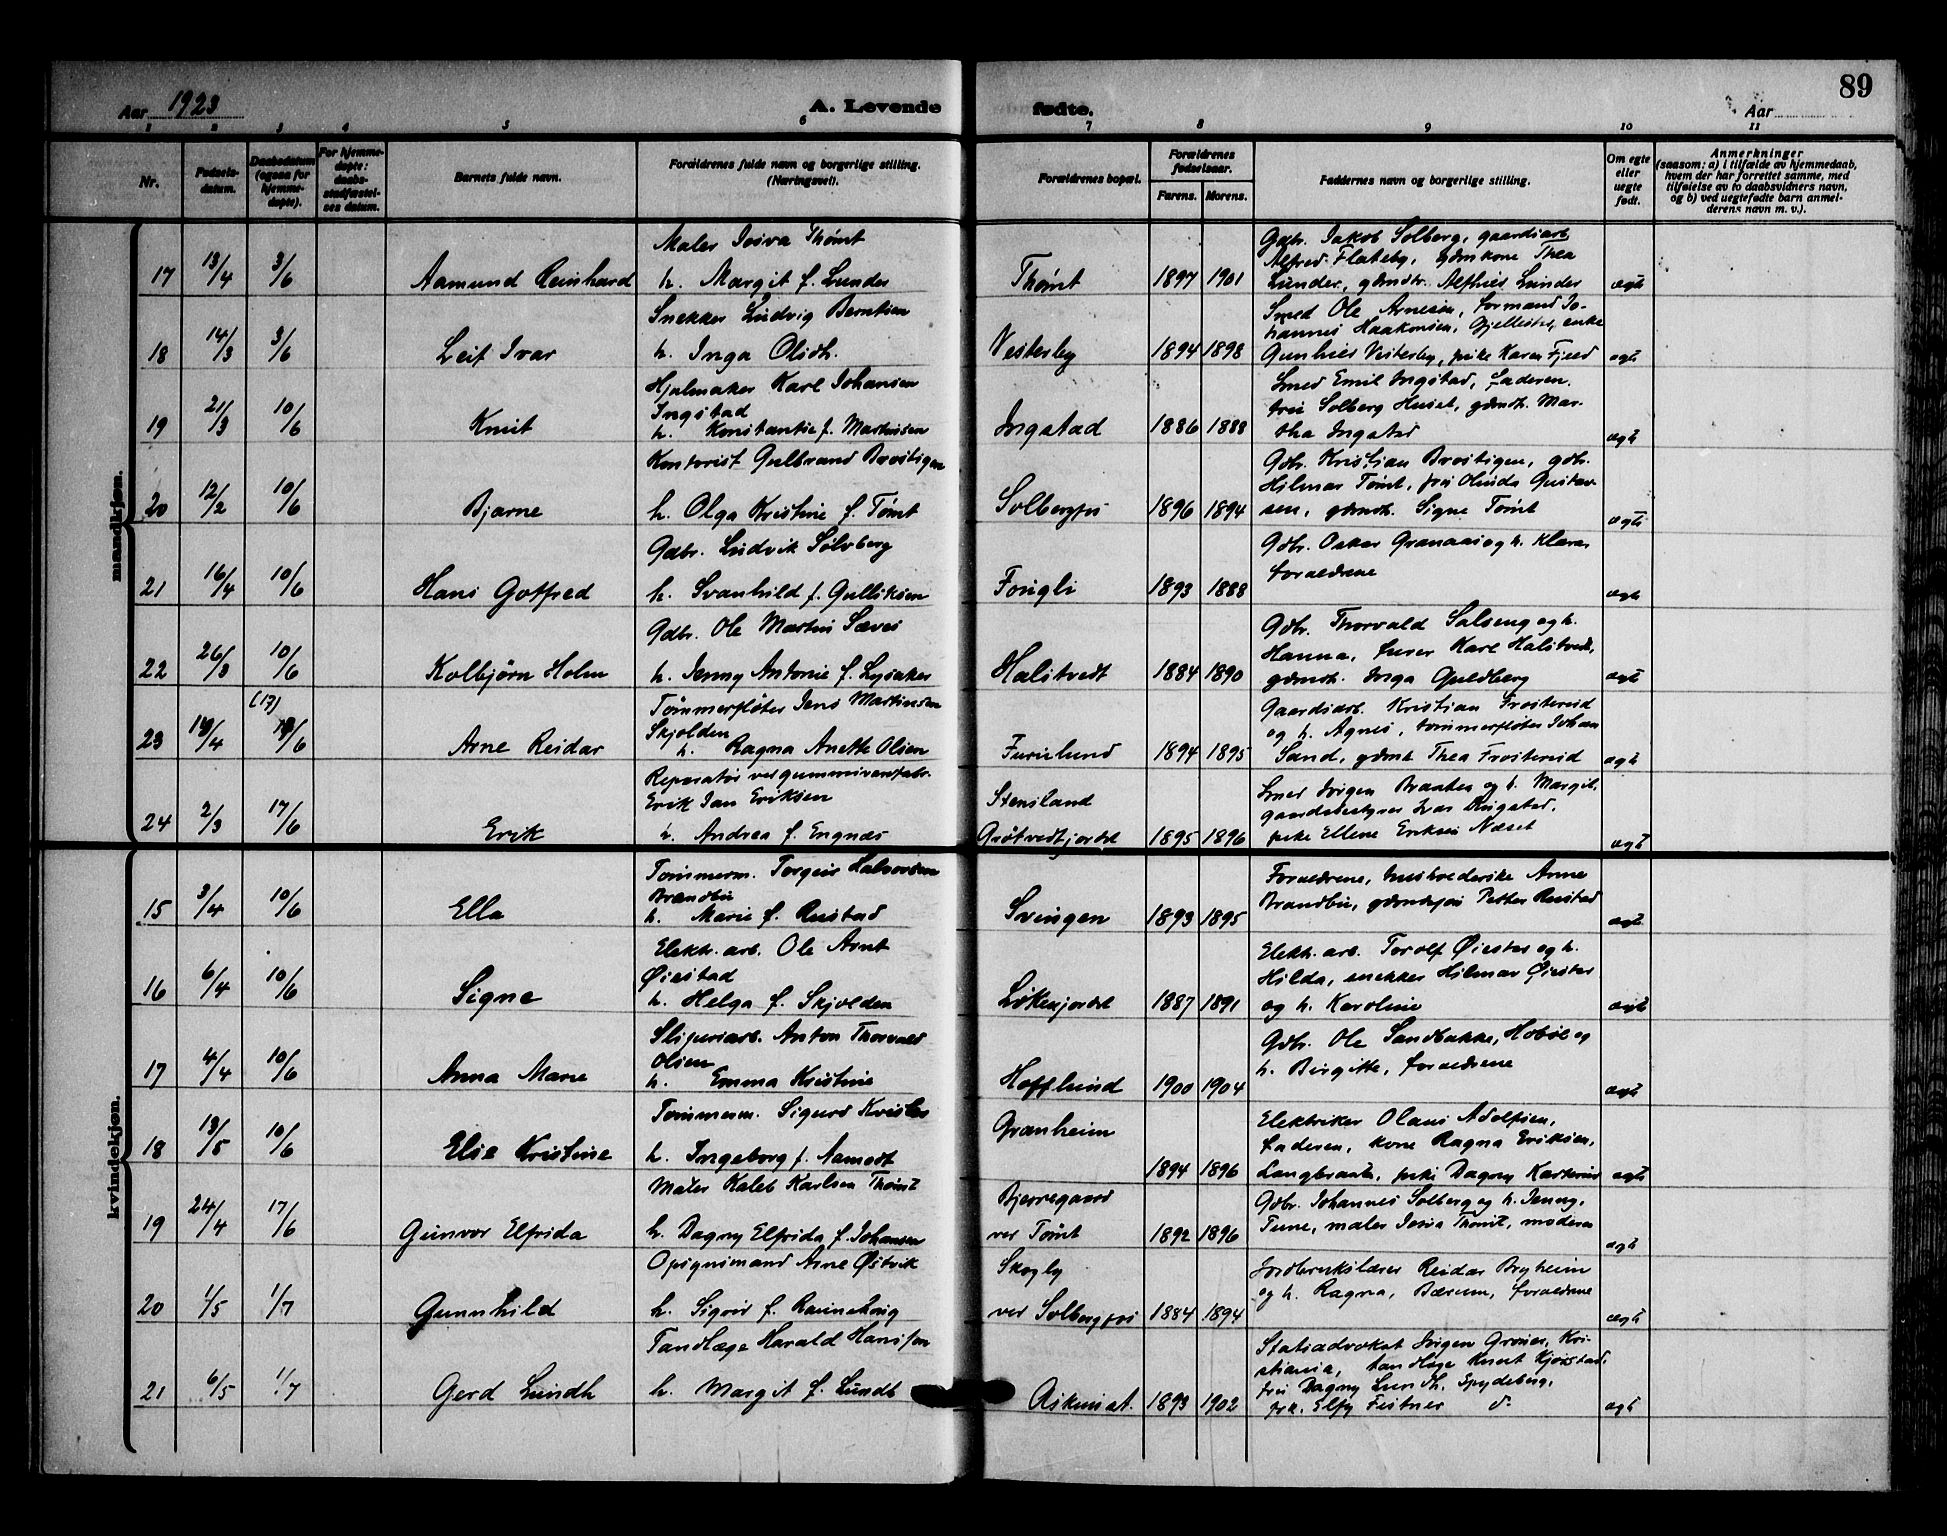 89
Aar 1923
A. Levende fødte.
Aar
1 2 3 4 5 6 7 8 9 10 11
Nr.
Fødsels-
datum.
Daabsdatum
(ogsaa for
hjemme-
døpte).
For hjemme-
døpte:
daabs-
stadfæstel-
ses datum.
Barnets fulde navn.
Forældrenes fulde navn og borgerlige stilling.
(Næringsvei).
Forældrenes bopæl.
Forældrenes
fødselsaar.
Farens. Morens.
Faddernes navn og borgerlige stilling.
Om egte
eller
uegte
født.
Anmerkninger
(saasom: a) i tilfælde av hjemmedaab,
hvem der har forrettet samme, med
tilføielse av to daabsvidners navn,
og b) ved uegtefødte barn anmel-
derens navn m. v.).
mandkjøn.
17 13/4 3/6 Aamund Reinhard
Maler Josva Thømt
h. Margit f. Lunder
Thømt 1897 1901
Gdbr. Jakob Solberg, gaardsarb
Alfred Flateby, gdmkone Thea
Lunder, gdmdtr. Alfhild Lunder
egte
18 14/3 3/6 Leif Ivar
Snekker Ludvig Berntsen
h. Inga Olsdh.
Vesterby 1894 1898
Smed Ole Arnesen, formand Jo-
hannes Haakonsen, enke
Gunhild Vesterby, pike Karen Fjeld
egte
19 21/3 10/6 Knut
Hjulmaker Karl Johansen
Ingstad
h. Konstantie f. Martinsen
Ingstad 1886 1888
Smed Emil Ingstad, faderen
fru Solberg Huset, gdmdt. Mar-
tha Ingstad
egte
20 12/2 10/6 Bjarne
Kontorist Gulbrand Bratigen
h. Olga Kristine f. Tømt
Solbergfos 1896 1894
Gdbr. Kristian Bratigen, gdb.
Hilmar Tømt, frk Olinda Gustav
sen, gdmdt. Signe Tømt
egte
21 16/4 10/6 Hans Gotfred
Gdbr. Ludvik Solvberg
h. Svanhild f. Gulliksen
Fougli 1893 1888
Gdbr. Oskar Granaas og h. Klara
forældrene
egte
22 26/3 10/6 Kolbjørn Holm
Gdbr. Ole Martin Sæves
h. Jenny Antonie f. Lysaker
Halstvedt 1884 1890
Gdbr. Thorvald Salseng og h.
Hanna, Karl Halstvedt,
gdmdt. Inga Guldberg
egte
23 (17) /6 Arne Reidar
Tømmerfløter Jens Martinsen
Skjolden
h. Ragna Anette Olsen
Furulund 1894 1895
Gaardsarb. Kristian Frostereid
og h. Agnes, tømmerfløter Johan
Sand, gdmdt Thea Frostereid
egte
24 2/3 17/6 Erik
Reparatør ved gummivarefabr.
Erik Jan Eriksen
h. Andrea f. Engnæs
Stensland
Grøtvedtjordet 1895 1896
Smed Jørgen Braaten og h. Margit,
gaardsbestyrer Ivar Ringstad,
pike Ellene Eriksen Næset
egte
kvindekjøn.
15 3/4 10/6 Ella
Tømmerm. Torgeir Halvorsen
Brandbu
h. Marie f. Rustad
Svingen 1893 1895
Forældrene, husholderske Anne
Brandbu, Petter Rustad
egte
16 6/4 10/6 Signe
Elektr. arb. Ole Arnt
Øiestad
h. Helga f. Skjolden
Løkenjordet 1887 1891
Elektr. arb. Torolf Øiestad og h.
Hilda, snekker Hilmar Øiestad
og h. Karoline
egte
17 4/4 10/6 Anna Marie
Sliperiarb. Anton Thorvald
Olsen
h. Emma Kristine
Hofflund 1900 1904
Gdbr. Ole Sandbakke, Hobøl og
h. Birgitte, forældrene
egte
18 13/5 10/6 Else Kristine
Tømmerm. Sigurd Kvisler
h. Ingeborg f. Aamodt
Granheim
1894 1896
Elektriker Olaus Adolfsen,
faderen, kone Ragna Eriksen,
Langbraaten, pike Dagny Karterud
egte
19 24/4 17/6 Gunvor Elfrida
Maler Kaleb Karlsen Thømt
h. Dagny Elfrida f. Johansen
Bjerregaard
ved Tømt 1892 1896
Gdbr. Johannes Solberg og h. Jenny,
Tune, maler Josva Thømt, moderen
egte
20 1/5 1/7 Gunnhild
Opsynsmand Arne Østvik
h. Sigrid f. Raunehaug
Skogly
ved Solbergfos 1884 1894
Jordbrukslærer Reidar Bryheim
og h. Ragna, Bærum, forældrene
egte
21 6/5 1/7 Gerd Lundh
Tandlæge Harald Hanssen
h. Margit f. Lundh
Askim st. 1893 1902
Statsadvokat Jørgen Grønes, Kri-
stiania, tandlæge Knut Kjørstad,
fru Dagny Lundh, Spydeberg,
frk. Elfy Feitner do
egte